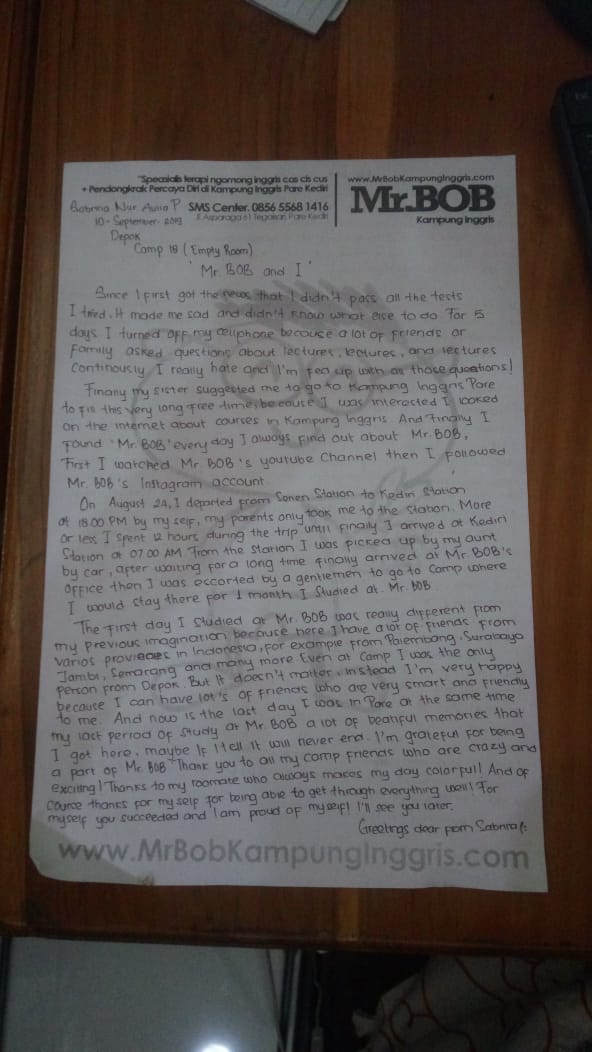 "Spesialis terapi ngomong inggris cas cis cus
+ Pendongkrak Percaya Diri di Kampung Inggris Pare Kediri
SMS Center. 0856 5568 1416
Jl. Asparaga 61 Tegalsari, Pare Kediri
www.MrBobKampungInggris.com
Mr.BOB
Kampung Inggris
Sabrina Nur Aulia P
10 - September - 2019
Depok
Camp 18 ( Empty Room)
' Mr. BOB and I '
Since I first got the news that I didn't pass all the tests
I tried, It made me sad and didn't know what else to do For 5
days I turned off my cellphone becouse a lot of friends or
Family asked questions about lectures, lectures, and lectures
Continously I really hate and I'm fed up with all those questions!
Finally my sister suggested me to go to Kampung Inggris Pare
to fill this very long free time, because I was interested I looked
on the internet about courses in Kampung Inggris. And Finally I
Found 'Mr. BOB' every day I always find out about Mr. BOB,
First I watched Mr. BOB's youtube Channel then I followed
Mr. BOB's Instagram account
On August 24, I departed from Senen Station to Kediri Station
at 18.00 PM by my self, my parents only took me to the station. More
or less I spent 12 hours during the trip until finally I arrived at Kediri
Station at 07.00 AM From the Station I was picked up by my aunt
by car, after waiting for a long time finally arrived at Mr. BOB's
office then I was escorted by a gentlemen to go to Camp where
I would stay there for 1 month I Studied at Mr. BOB
The First day I studied at Mr. BOB was really different from
my previous imagination because here I have a lot of friends from
varios provinces in Indonesia, for example from Palembang, Surabaya
Jambi, Semarang and many more Even at Camp I was the only
person from Depok. But it doesn't matter, instead I'm very happy
because I can have lot's of friends who are very smart and friendly
to me. And now is the last day I was in Pare at the same time
my last period of study at Mr. BOB a lot of beatiful memories that
I got here, maybe If I tell it will never end. I'm grateful for being
a part of Mr. BOB Thank you to all my camp friends who are crazy and
exciting! Thanks to my roomate who always makes my day colorful! And of
cource thanks for my self for being able to get through everything well! For
myself you succeeded and I am proud of myself! I'll see you later.
Greetings dear from Sabrina
www.MrBobKampungInggris.com